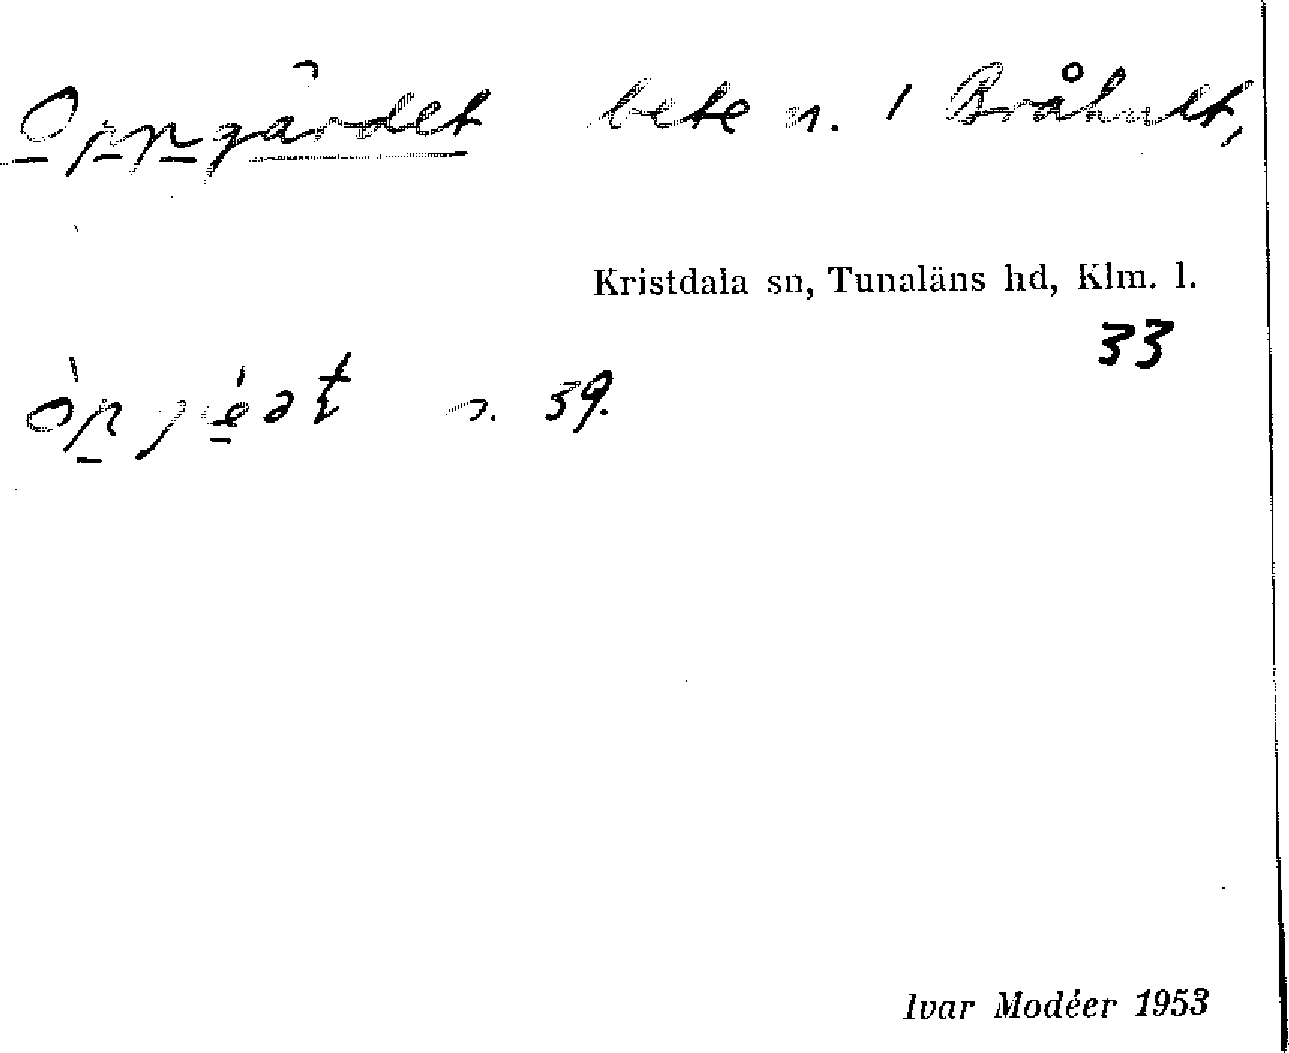 Oppgärdet bete n. i Bråhult,
Kristdala sn, Tunaläns hd, Klm. l.
33
n. 39.
Ivar Modéer 1953